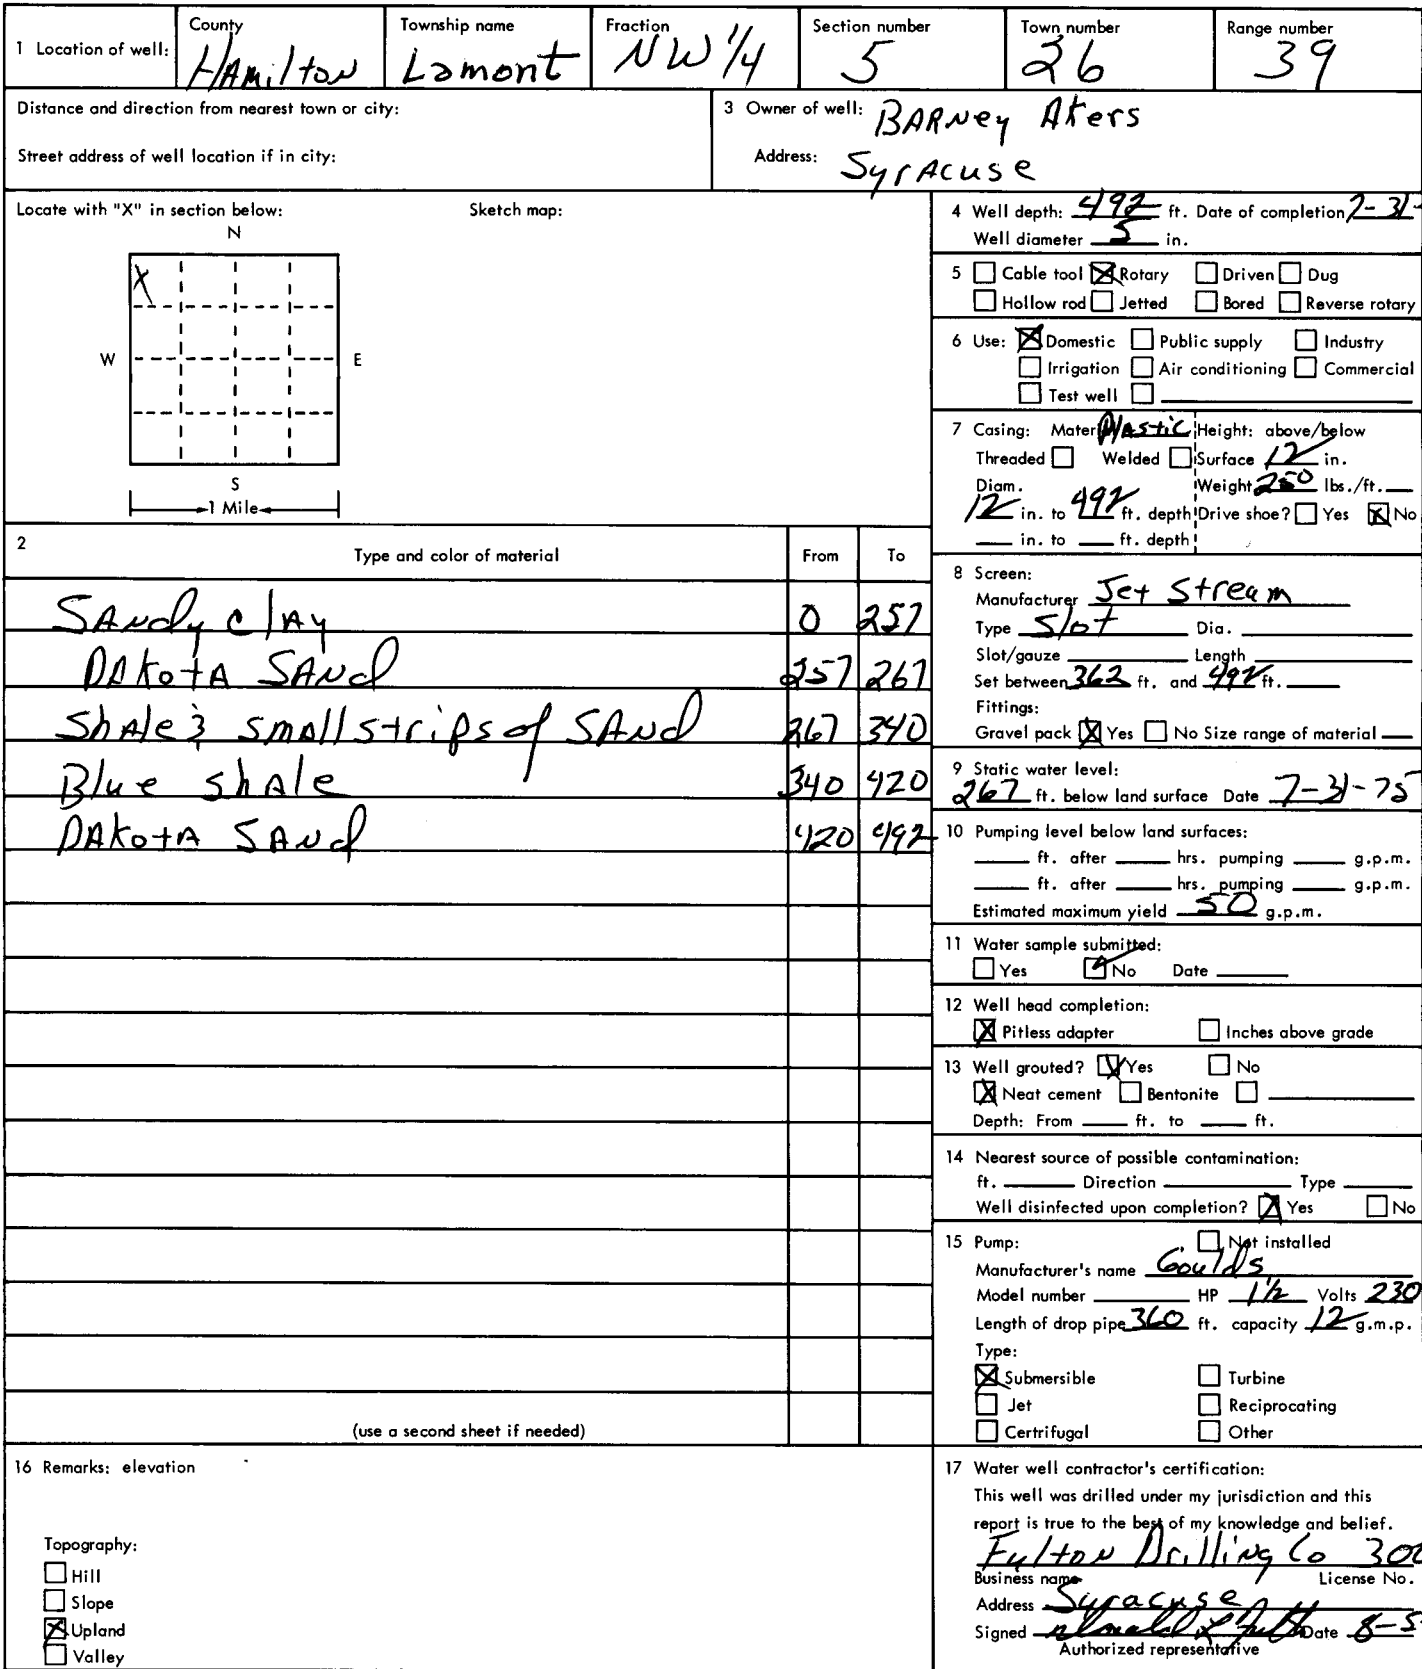 1 Location of well: County Hamilton Township name Lamont Fraction NW 1/4 Section number 5 Town number 26 Range number 39
Distance and direction from nearest town or city:
Street address of well location if in city:
3 Owner of well: Barney Akers
Address: Syracuse
Locate with "X" in section below: Sketch map:
N
X
W E
S
1 Mile
2 Type and color of material From To
Sandy clay 0 257
Dakota Sand 257 267
Shale & small strips of sand 267 340
Blue shale 340 420
Dakota Sand 420 492
(use a second sheet if needed)
4 Well depth: 492 ft. Date of completion 7-31-
Well diameter 5 in.
5 Cable tool X Rotary Driven Dug
Hollow rod Jetted Bored Reverse rotary
6 Use: X Domestic Public supply Industry
Irrigation Air conditioning Commercial
Test well
7 Casing: Mater Plastic Height: above/below
Threaded Welded Surface 12 in.
Diam. Weight 250 lbs./ft.
12 in. to 492 ft. depth Drive shoe? Yes X No
in. to ft. depth
8 Screen:
Manufacturer Jet Stream
Type Slot Dia.
Slot/gauze Length
Set between 362 ft. and 492 ft.
Fittings:
Gravel pack X Yes No Size range of material
9 Static water level:
267 ft. below land surface Date 7-31-75
10 Pumping level below land surfaces:
ft. after hrs. pumping g.p.m.
ft. after hrs. pumping g.p.m.
Estimated maximum yield 50 g.p.m.
11 Water sample submitted:
Yes ✓ No Date
12 Well head completion:
X Pitless adapter Inches above grade
13 Well grouted? X Yes No
X Neat cement Bentonite
Depth: From ft. to ft.
14 Nearest source of possible contamination:
ft. Direction Type
Well disinfected upon completion? X Yes No
15 Pump: Not installed
Manufacturer's name Goulds
Model number HP 1 1/2 Volts 230
Length of drop pipe 360 ft. capacity 12 g.m.p.
Type:
X Submersible Turbine
Jet Reciprocating
Certrifugal Other
16 Remarks: elevation
Topography:
Hill
Slope
X Upland
Valley
17 Water well contractor's certification:
This well was drilled under my jurisdiction and this
report is true to the best of my knowledge and belief.
Fulton Drilling Co 300
Business name License No.
Address Syracuse
Signed Date 8-5-
Authorized representative